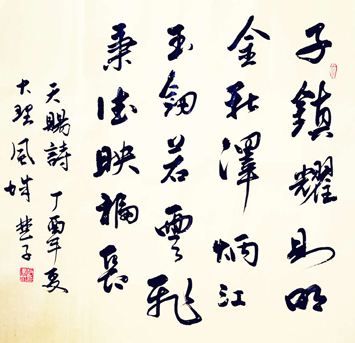 子鎮耀則明
金秋澤炳江
玉劍若雲飛
秉德映福長
天賜詩 丁酉年夏
大理風城 子